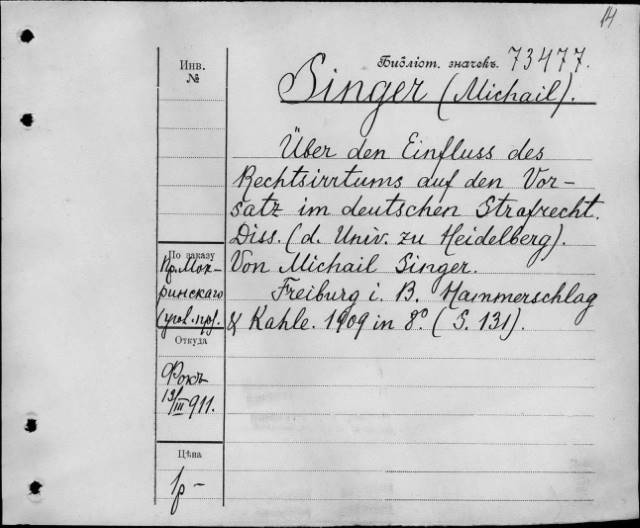 14
Библіот. значекъ. 73477.
Инв.
№
Singer (Michail).
Über den Einfluss des
Rechtsirrtums auf den Vor-
satz im deutschen Strafrecht.
Diss. (d. Univ. zu Heidelberg).
Von Michail Singer.
Freiburg i. B. Hammerschlag
& Kahle. 1909 in 8º. (S. 131).
По заказу
Пр. Мок-
ринскаго
(угол. пр).
Откуда
Фокъ
13/III 911.
Цѣна
1р –